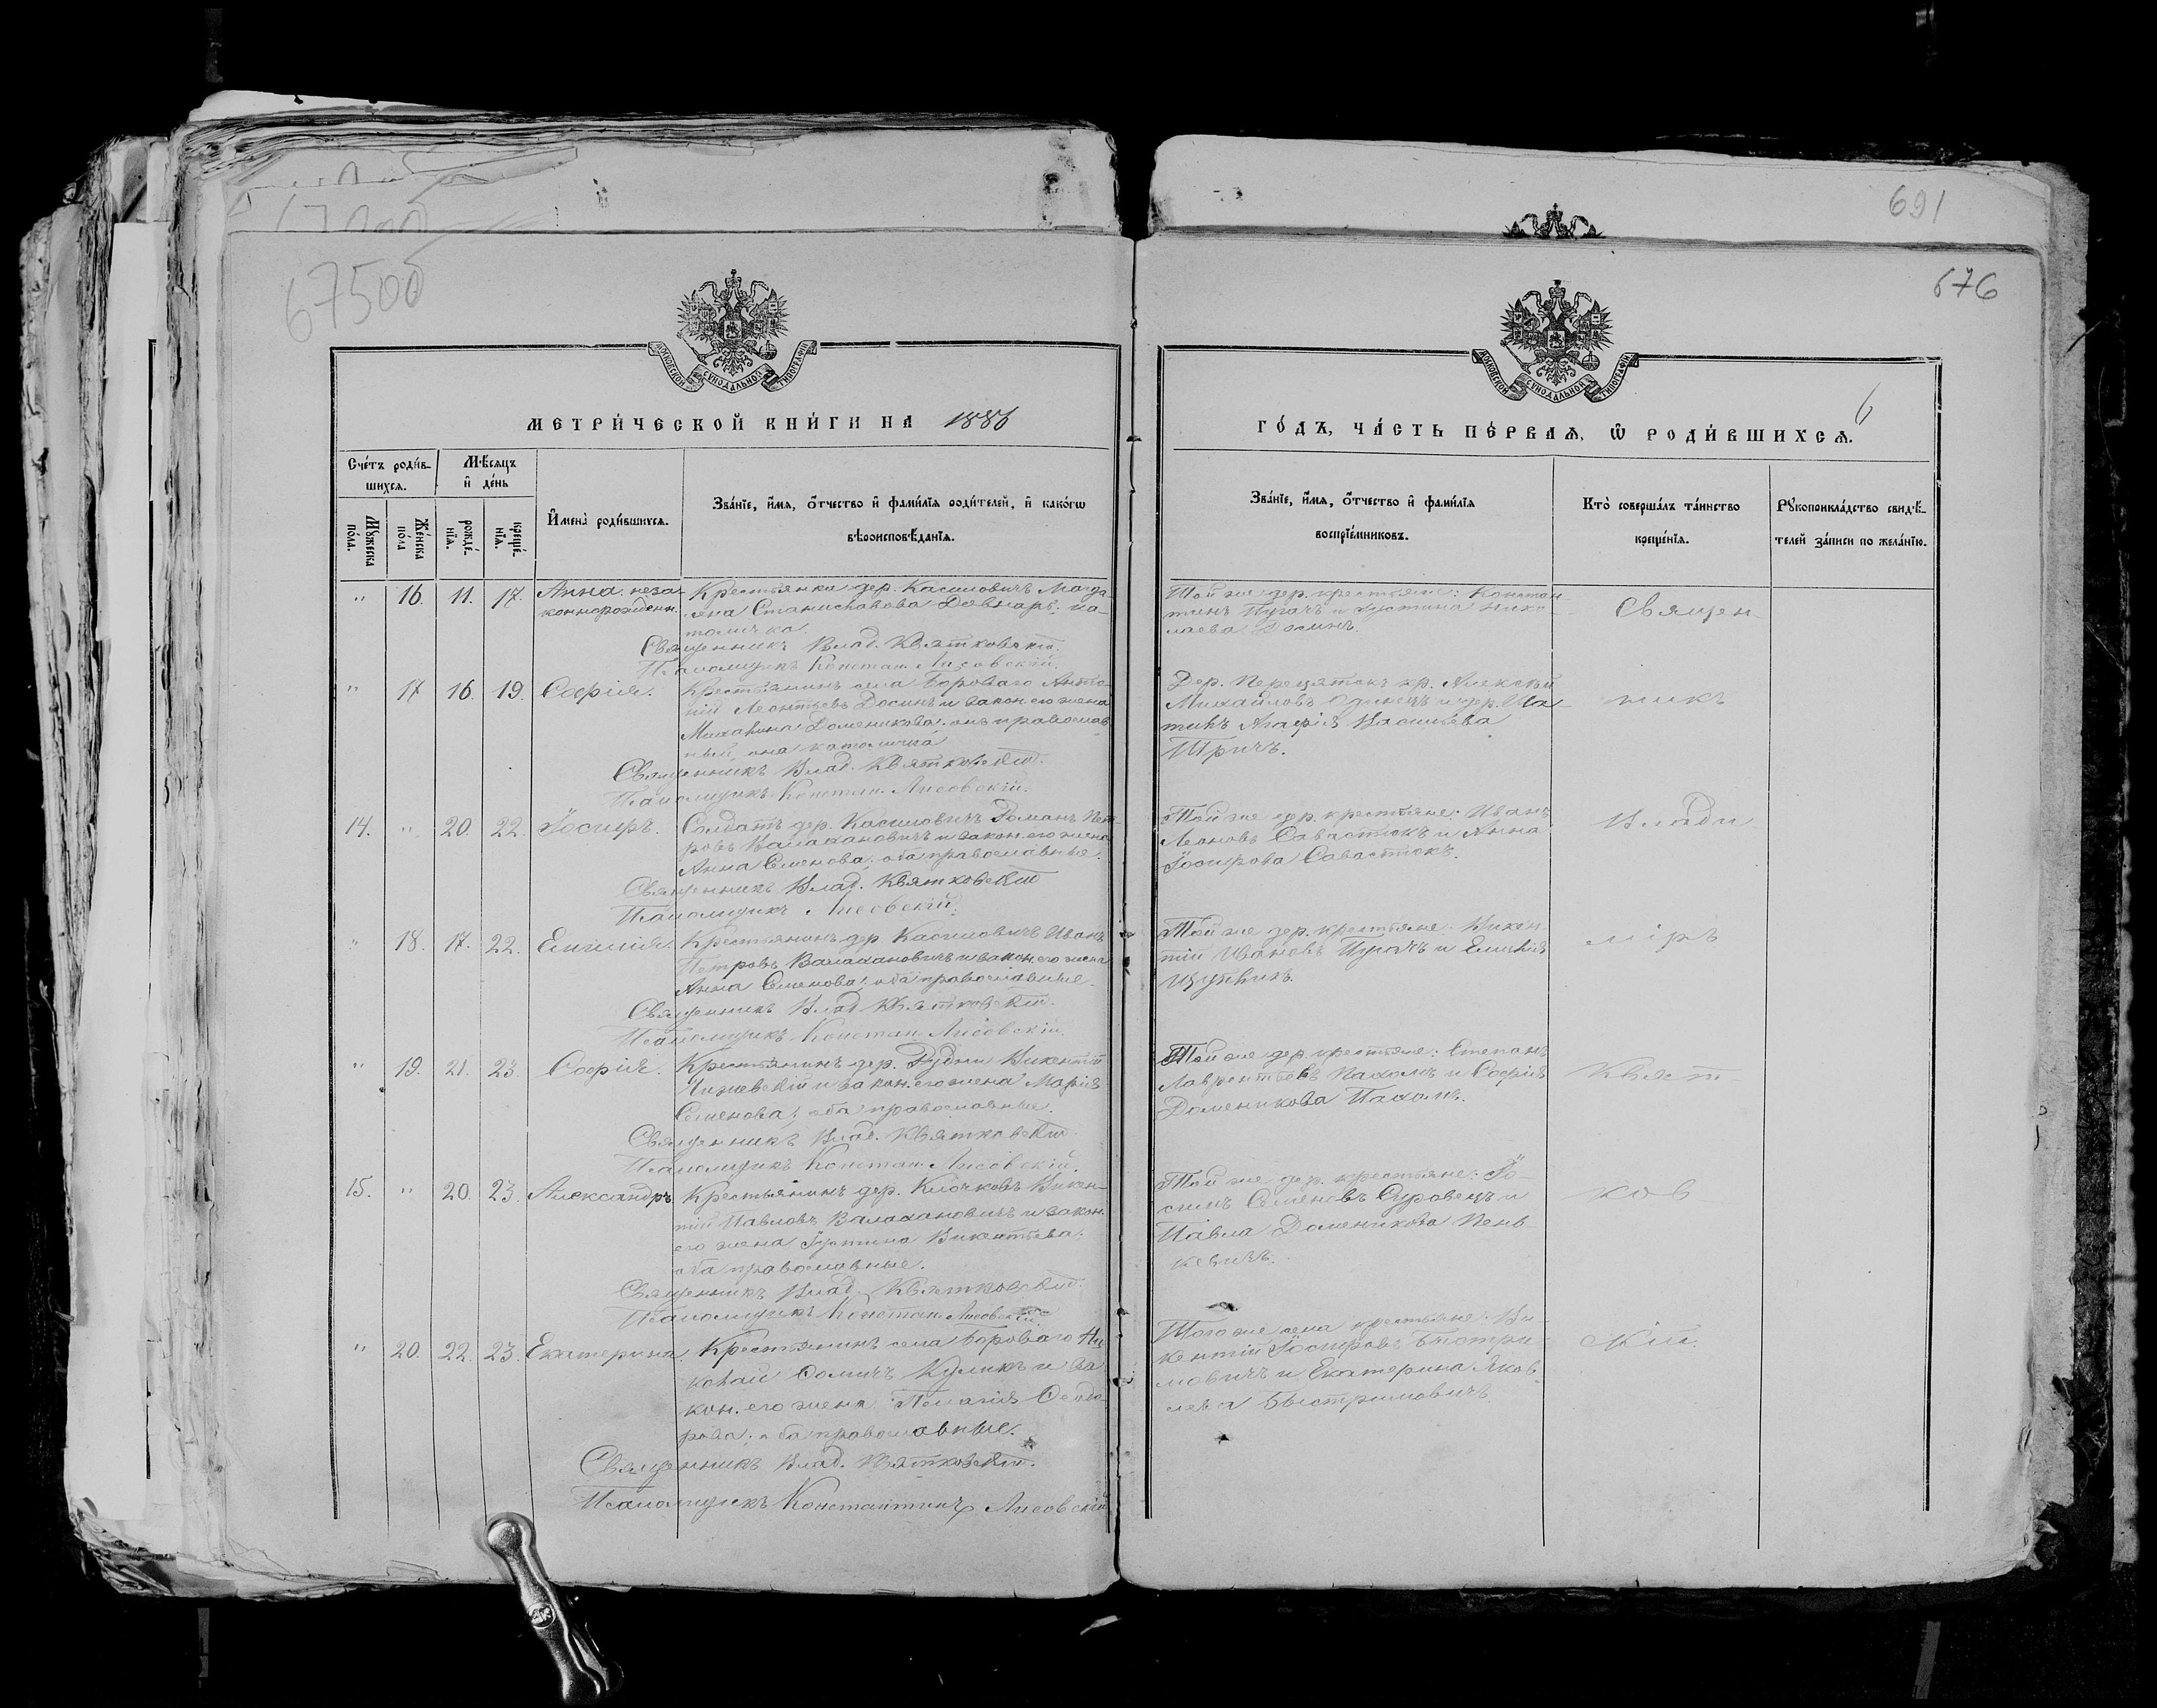 691
67500
676
МОСКОВСКОЙ СѴНОДАЛЬНОЙ ТИПОГРАФІИ
МОСКОВСКОЙ СѴНОДАЛЬНОЙ ТИПОГРАФІИ
6
МЕТРИ́ЧЕСКОЙ КНИ́ГИ НА 1886
ГО́ДЪ, ЧА́СТЬ ПЕ́РВАѦ, Ѡ҆ РОДИ́ВШИХСѦ.
Сче́тъ роди́в-
шихсѧ.
Мꙋжеска по́ла.
Же́нска по́ла
Мѣ́сѧцъ
и҆ де́нь
рожде́-
нїѧ.
креще́-
нїѧ.
И҆мена̀ роди́вшихсѧ.
Зва́нїе, и҆́мѧ, ѻ҆́тчество и҆ фами́лїѧ роди́телей, и҆ како́гѡ
вѣроисповѣ́данїѧ.
Зва́нїе, и҆́мѧ, ѻ҆́тчество и҆ фами́лїѧ
воспрїе́мниковъ.
Кто̀ соверша́лъ та́инство
креще́нїѧ.
Рꙋкоприкла́дство свидѣ́-
телей за́писи по жела́нїю.
" 16. 11. 17. Анна. неза-
коннорожденн.
Крестьянка дер. Касиловичъ Магда-
лена Станиславова Довнаръ; ка-
толичка.
Священникъ Влад. Квятковскій.
Псаломщикъ Констан. Лисовскій.
Той же дер. крестьяне: Констан-
тинъ Пугачъ и Іустина Нико-
лаева
Священ-
" 17 16. 19. Софія.
Крестьянинъ села Бороваго Анто-
ній Леонтьевъ Досинъ и закон. его жена
Михалина Доменикова. онъ православ-
ный, она католичка
Священникъ Влад. Квятковскій.
Псаломщикъ Констан. Лисовскій.
Дер. кр. Алексѣй
Михайловъ Одинецъ и дер.
Агафія Васильева
никъ
14. " 20. 22. Іосифъ.
Солдатъ дер. Касиловичъ Романъ Пет-
ровъ Валахановичъ и закон. его жена
Анна Семенова; оба православные.
Священникъ Влад. Квятковскій
Псаломщикъ Лисовскій.
Той же дер. крестьяне: Иванъ
Леоновъ Савастюкъ и Анна
Іосифова Савастюкъ.
Влади-
" 18. 17. 22. Емилія.
Крестьянинъ дер. Касиловичъ Иванъ
Петровъ Валахановичъ и закон. его жена
Анна Семенова; оба православные.
Священникъ Влад. Квятковскій.
Псаломщикъ Констан. Лисовскій
Той же дер. крестьяне: Викен-
тій Ивановъ Пугачъ и Емилія
міръ
" 19. 21. 23. Софія.
Крестьянинъ дер. Рудни Викентій
Чижевскій и закон. его жена Марія
Семенова; оба православные.
Священникъ Влад. Квятковскій.
Псаломщикъ Констан. Лисовскій.
Той же дер. крестьяне: Степанъ
Лаврентьевъ Пахомъ и Софія
Доменикова Пахомъ.
Квят-
15. " 20. 23. Александръ
Крестьянинъ дер. Клочковъ Викен-
тій Павловъ Валахановичъ и закон.
его жена Іустина Викентьева;
оба православные.
Священникъ Влад. Квятковскій.
Псаломщикъ Констан. Лисовскій.
Той же дер. крестьяне: Іо-
сифъ Семеновъ Суровецъ и
Павла Доменикова Пень-
кевичъ.
ков
" 20. 22. 23. Екатерина.
Крестьянинъ села Бороваго Ни-
колай Куликъ и за-
кон. его жена Пелагія Феодо-
рова; оба православные.
Священникъ Влад. Квятковскій.
Псаломщикъ Константинъ Лисовскій
Того же села крестьяне: Ви-
кентій Іосифовъ Быстри-
мовичъ и Екатерина Яков-
лева Быстримовичъ
скій.